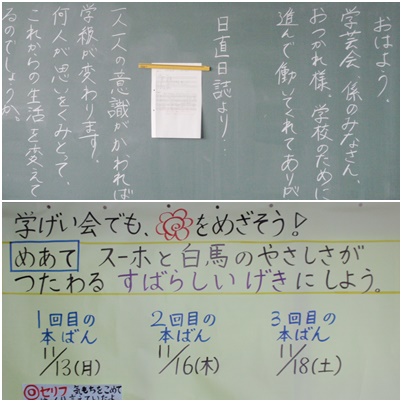 おはよう。
学芸会、係のみなさん、
おつかれ様、学校のために
進んで働いてくれてありが
日直日誌より…
一人一人の意識がかわれば
学校が変わります。
何人が思いをくみとって、
これからの生活を変えて
るのでしょうか。
学げい会でも、をめざそう!
めあて スーホと白馬のやさしさが
つたわる すばらしい げきにしよう。
1回目の
本ばん
11/13(月)
2回目の
本ばん
11/16(木)
3回目の
本ばん
11/18(土)
◎セリフ 気もちをこめて